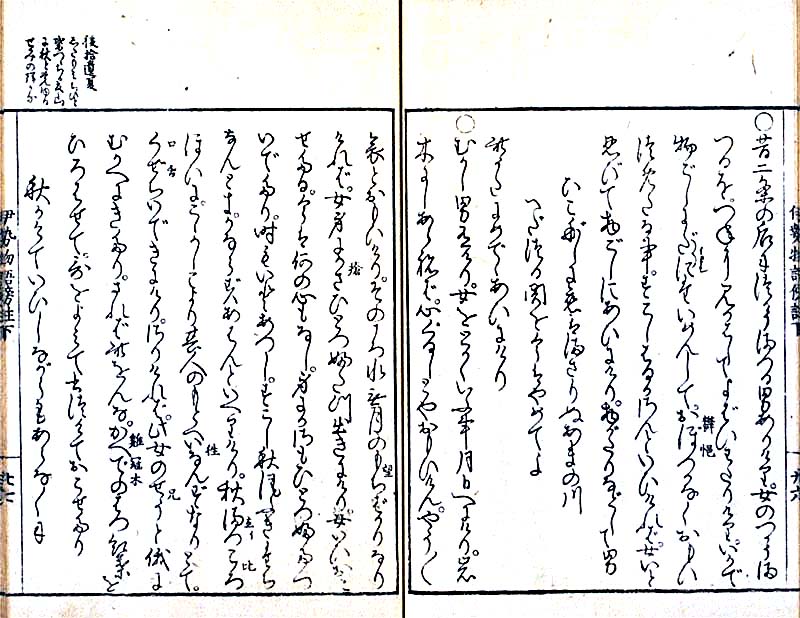 ○昔二条の后につかうまつる男ありけり。女のつかうま
つるを。つねに見かはして。よばひわたりけり。いかで
物ごしにたいめんして。おぼつかなくおもひ
つめたる事。すこしはるかさんといひければ。女いと
忍びて物ごしにあひにけり。物がたりなどして男
ひこぼしに恋はまさりぬあまの川
へだつる関を今はやめてよ
此うたにめでてあひにけり
○むかし男有けり。女をとかくいふ事月日へにけり。岩
木にしあらねば。心ぐるしとやおもひけん。やう〳〵
哀とおもひけり。そのころ水無月のもちばかりなり
望
ければ。女身にかさひとつふたつ出きにけり。女いひおこ
せたる。今は何の心もなし。身にかさもひとつふたつ
いでたり。時もいとあつし。すこし秋風ふきたち
なん時かならずあはんといへりけり。秋まつころ
比
ほひに。こゝかしこより其人のもとへいなんずなりとて。
くぜちいできにけり。さりければ此女のせうと俄に
口舌
兄
むかへにきたり。されば此女。かへでのはつ紅葉を
雞冠木
ひろはせて。哥をよみて書つけておこせたり
秋かけていひしながらもあらなくに
後拾遺夏
伊勢物語傍註下